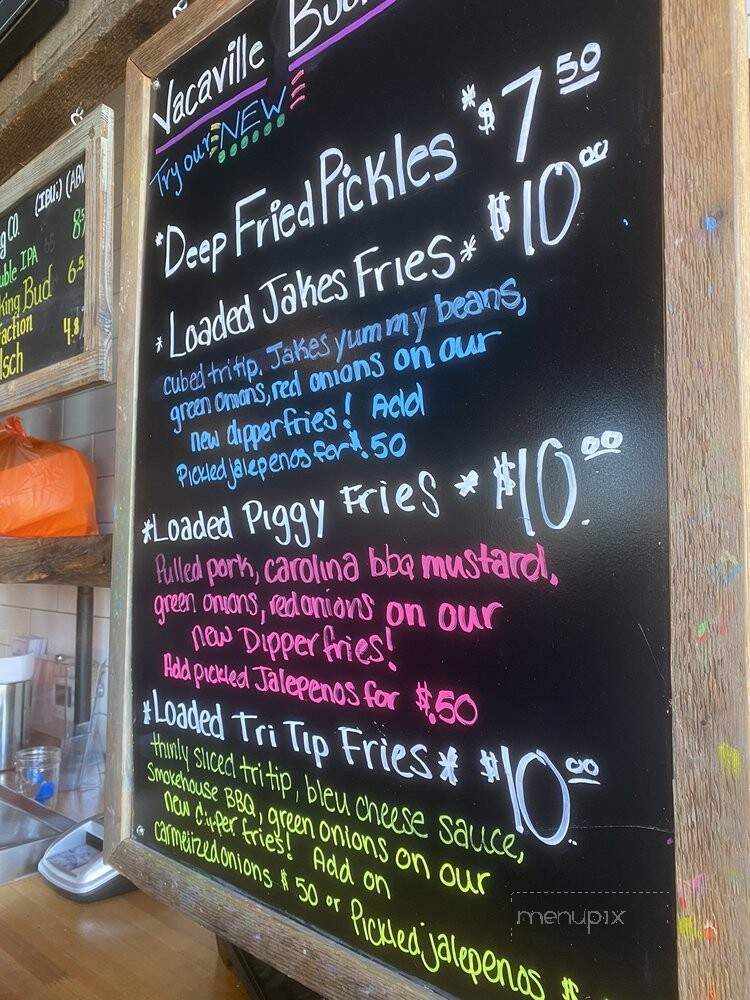 Vacaville
Try our NEW
*Deep Fried Pickles *$7 50
*Loaded Jakes Fries* $10 00
cubed tritip, Jakes yummy beans,
green onions, red onions on our
new dipper fries! Add
Pickled jalepenos for $.50
*Loaded Piggy Fries * $10.00
Pulled pork, carolina bbq mustard,
green onions, red onions on our
new Dipper fries!
Add pickled Jalepenos for $.50
*Loaded Tri Tip Fries* $10.00
thinly sliced tritip, bleu cheese sauce,
Smokehouse BBQ, green onions on our
new dipper fries! Add on
carmelized onions $.50 or Pickled jalepenos $
(IBU;) (ABV
g CO.
uble IPA 65 8.5
king Bud 6.5
faction
lsch 4.8
menupix